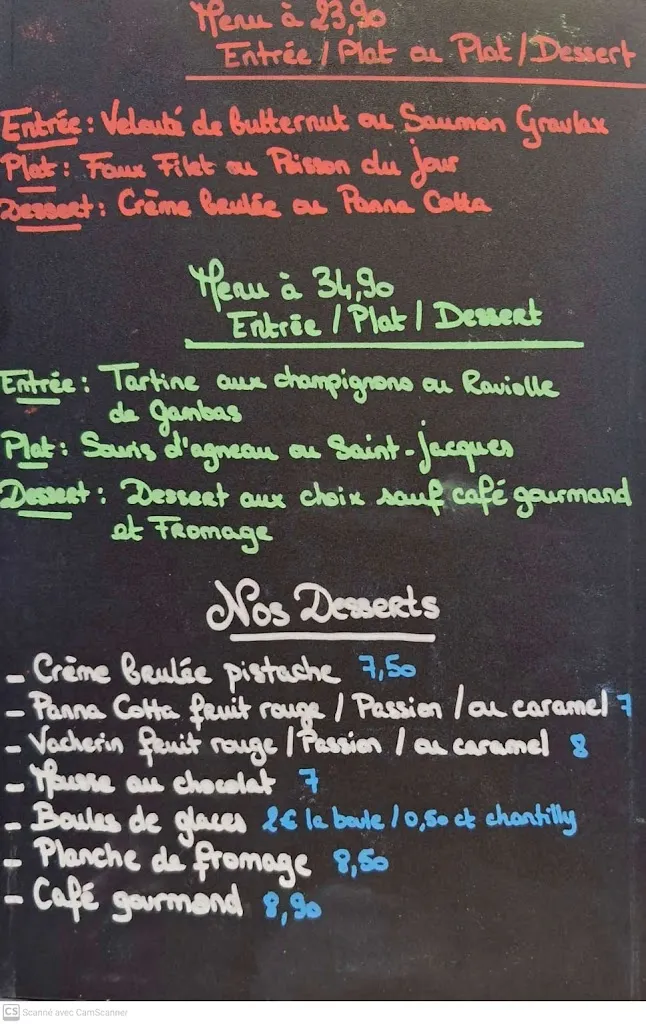 Menu à 23,90
Entrée / Plat ou Plat / Dessert
Entrée : Velouté de butternut ou Saumon Gravlax
Plat : Faux Filet ou Poisson du jour
Dessert : Crème brulée ou Panna Cotta
Menu à 34,90
Entrée / Plat / Dessert
Entrée : Tartine aux champignons ou Raviolle
de gambas
Plat : Souris d'agneau ou Saint-Jacques
Dessert : Dessert aux choix sauf café gourmand
et Fromage
Nos Desserts
- Crème brulée pistache 7,50
- Panna Cotta fruit rouge / Passion / ou caramel 7
- Vacherin fruit rouge / Passion / ou caramel 8
- Mousse au chocolat 7
- Boules de glaces 2€ la boule / 0,50 ct chantilly
- Planche de fromage 8,50
- Café gourmand 8,90
CS Scanné avec CamScanner